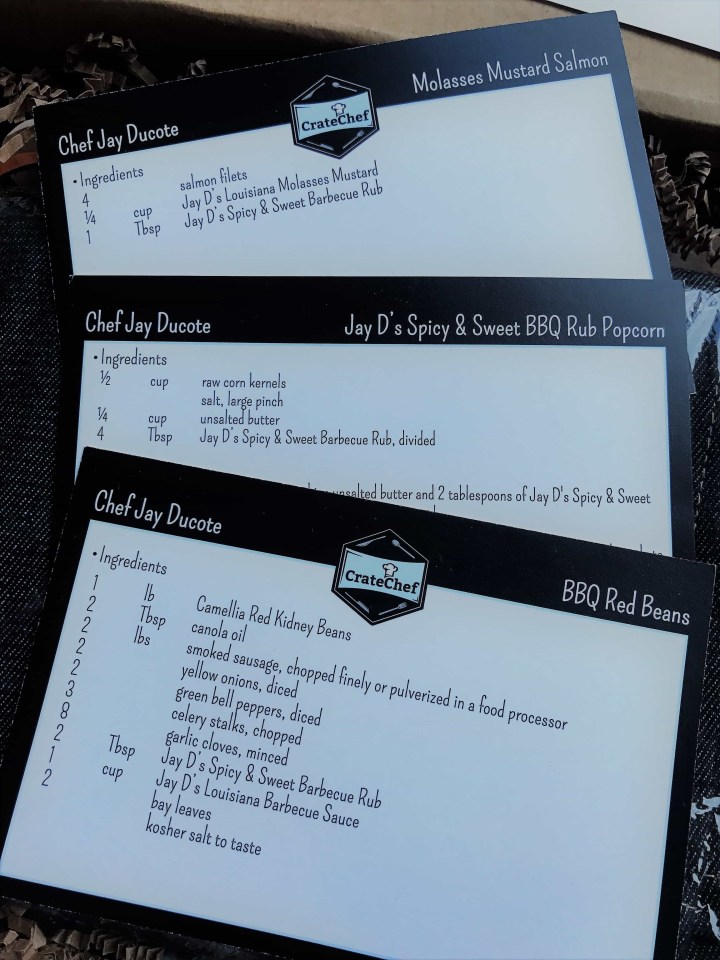 Chef Jay Ducote
CrateChef
Molasses Mustard Salmon
• Ingredients
4 salmon filets
¼ cup Jay D's Louisiana Molasses Mustard
1 Tbsp Jay D's Spicy & Sweet Barbecue Rub
Chef Jay Ducote
Jay D's Spicy & Sweet BBQ Rub Popcorn
• Ingredients
½ cup raw corn kernels
salt, large pinch
¼ cup unsalted butter
4 Tbsp Jay D's Spicy & Sweet Barbecue Rub, divided
unsalted butter and 2 tablespoons of Jay D's Spicy & Sweet
Chef Jay Ducote
CrateChef
BBQ Red Beans
• Ingredients
1 lb Camellia Red Kidney Beans
2 Tbsp canola oil
2 lbs smoked sausage, chopped finely or pulverized in a food processor
2 yellow onions, diced
2 green bell peppers, diced
3 celery stalks, chopped
8 garlic cloves, minced
2 Tbsp Jay D's Spicy & Sweet Barbecue Rub
1 cup Jay D's Louisiana Barbecue Sauce
2 bay leaves
kosher salt to taste